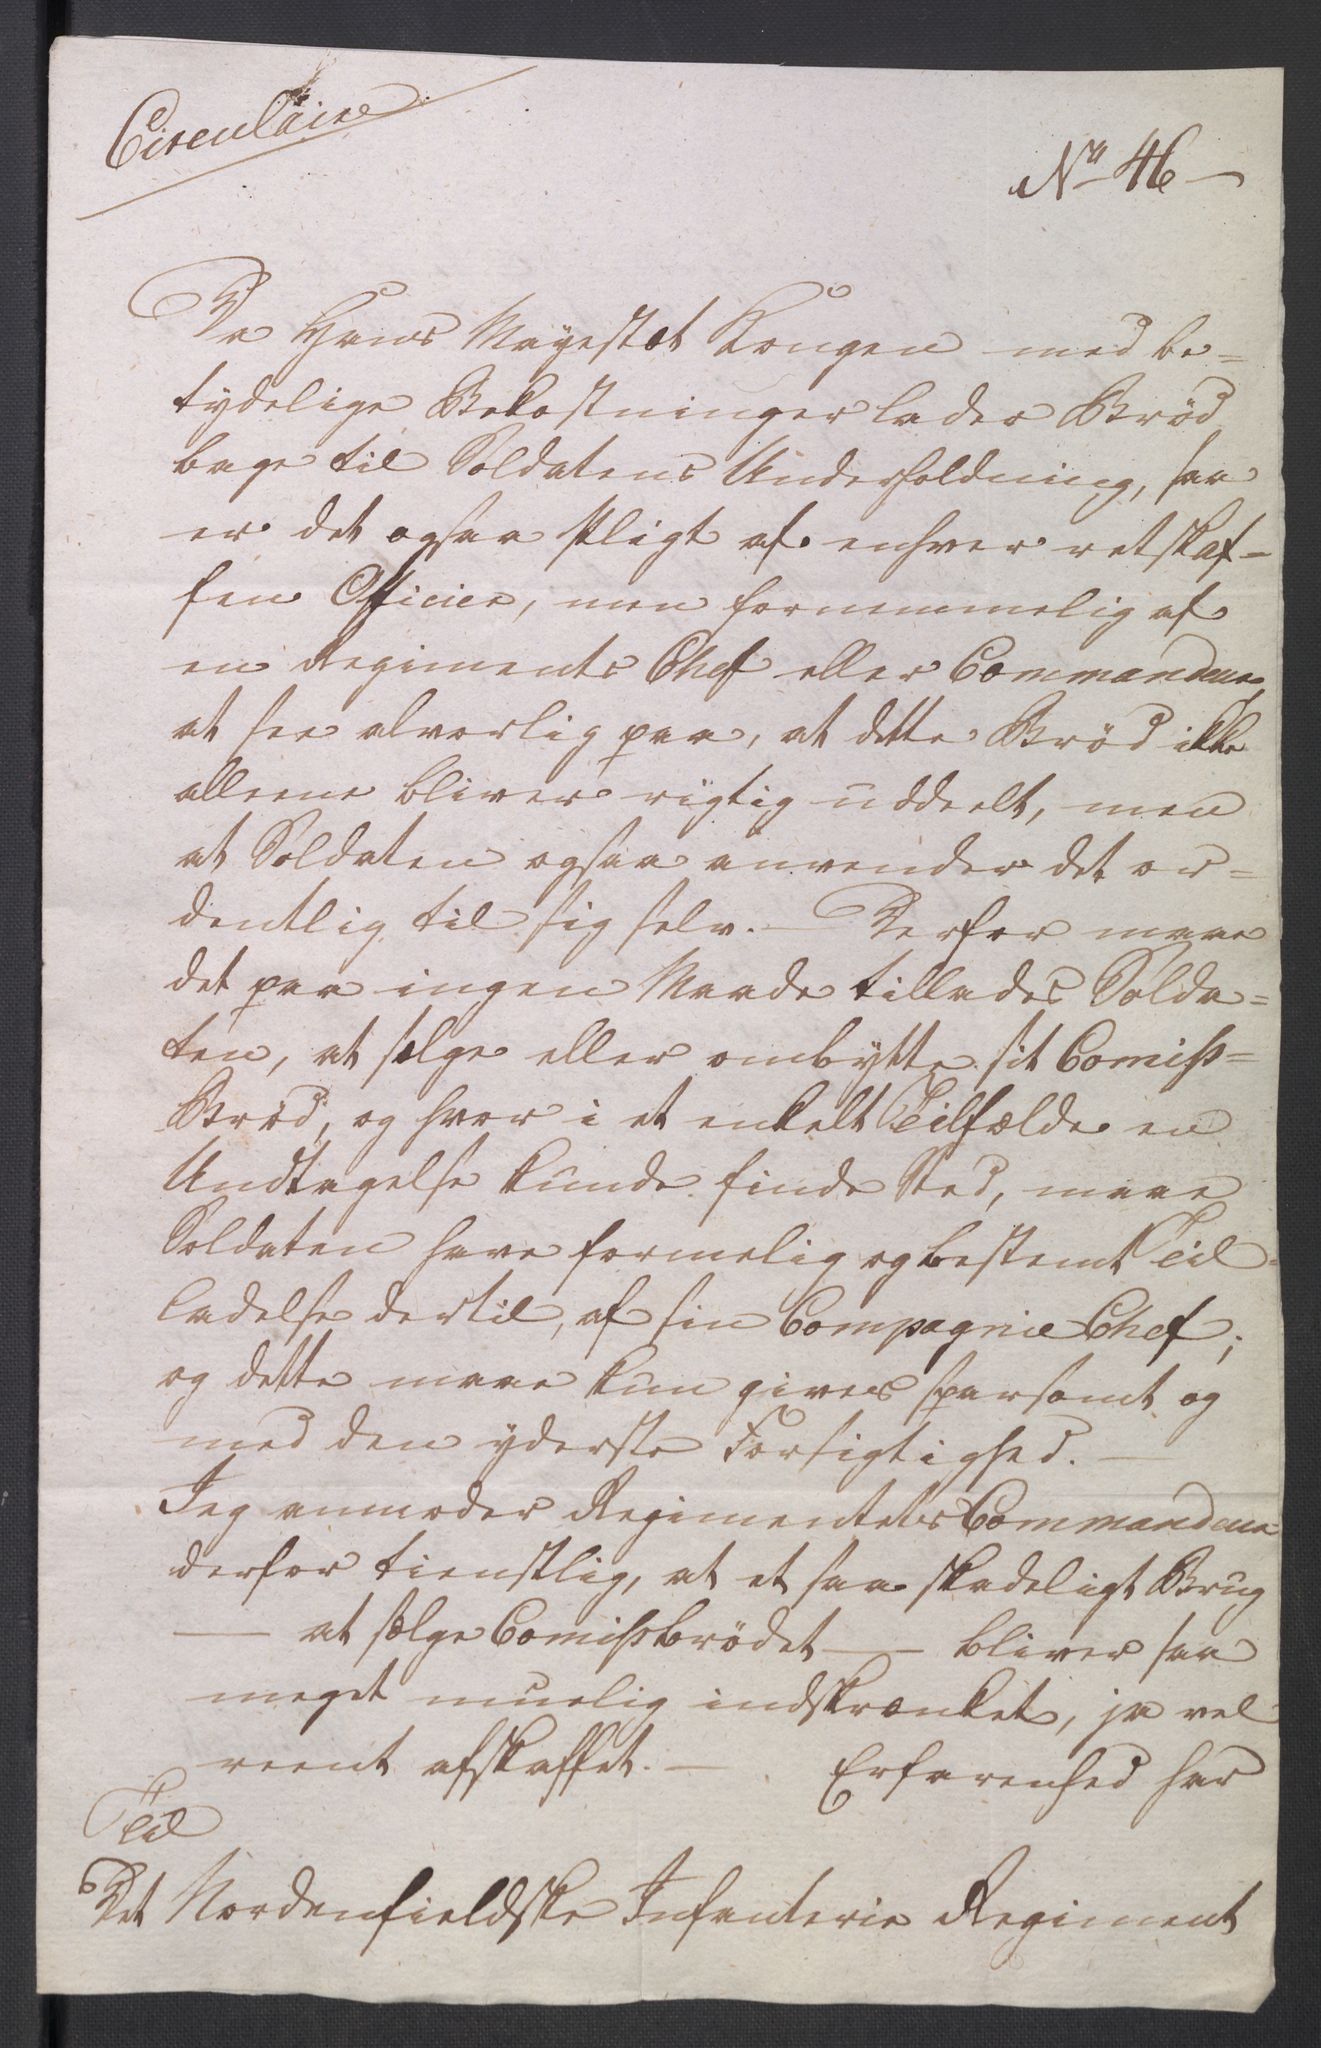 Circulaire
No 46
Da Hans Mayestæt Kongen med be=
tydelige Bekostninger lader Brød
bage til Soldatens Underholdning, saa
er det ogsaa Pligt af enhver retskaf-
fen Officier, men fornemmelig af
en Regiments Chef eller Commandeur,
at see alvorlig paa, at dette Brød ikke
alleene bliver rigtig uddeelt, men
at Soldaten ogsaa anvender det or=
dentlig til sig selv. — Derfor maae
det paa ingen Maade tillades Solda=
ten, at sælge eller ombytte sit Comiss=
Brød, og hvor i et enkelt Tilfælde en
Undtagelse kunde finde Sted, maae
Soldaten have formelig og bestemt Til=
ladelse dertil, af sin Compagnie Chef;
og dette maae kun gives sparsomt og
med den yderste Forsigtighed. —
Jeg anmoder Regimentets Commandeur
derfor tienstlig, at et saa skadeligt Brug
— at sælge Comissbrødet — bliver saa
meget muelig indskrænket, ja vel
reent afskaffet. — Erfarenhed har
Til
Det Nordenfieldske Infanterie Regiment